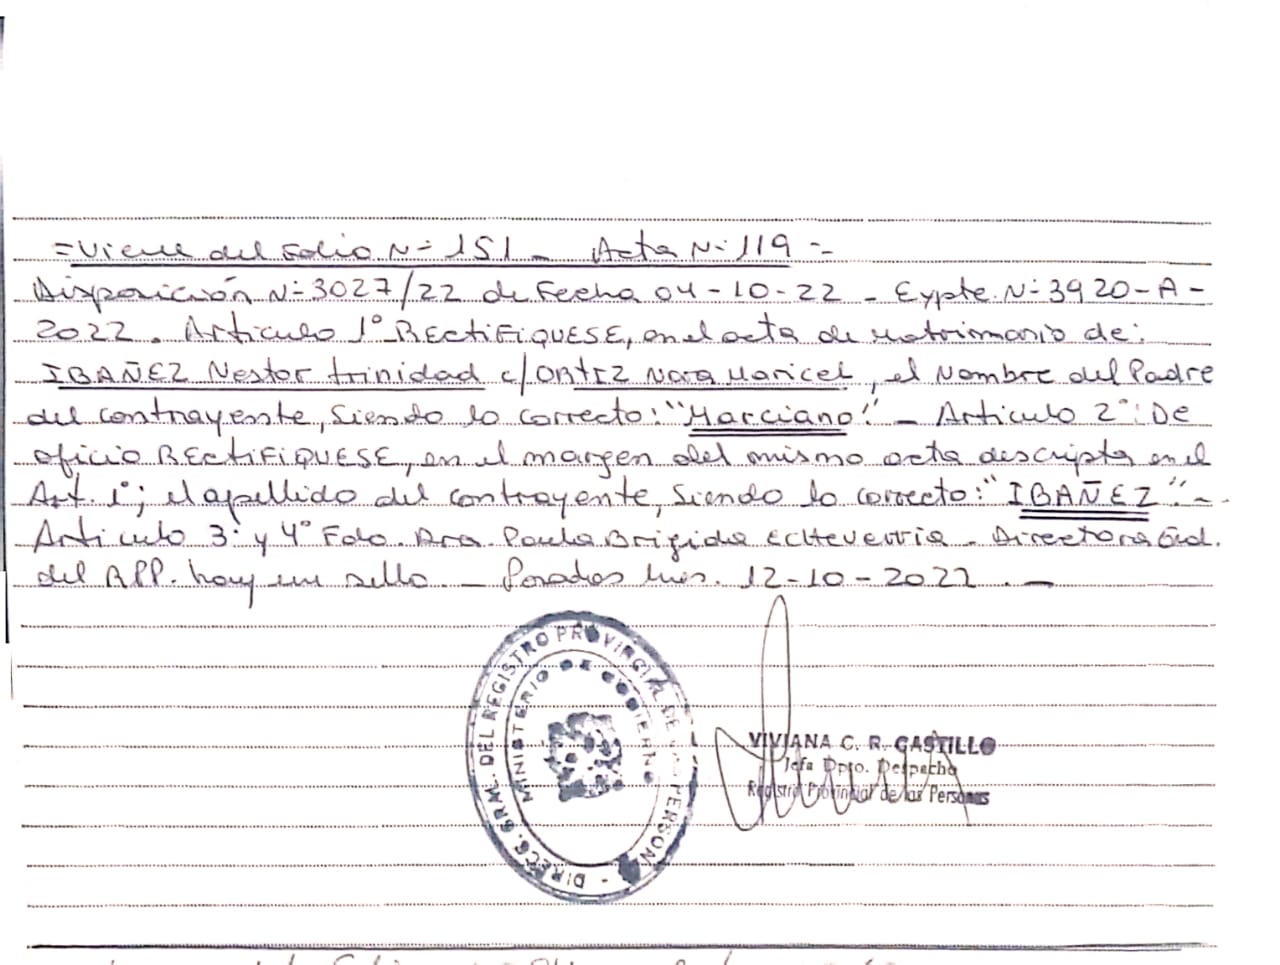 =Viene del Folio N=151_ Acta N=119=
Disposición N=3027/22 de Fecha 04-10-22 - Expte. N=3920-A-
2022. Articulo 1° RECtiFiQUESE, en el acta de matrimonio de:
IBAÑEZ Nestor trinidad c/ORTIZ Nora Maricel, el Nombre del Padre
del contrayente, Siendo lo correcto: "Marciano". - Articulo 2°: De
oficio RECtiFiQUESE, en el margen del mismo acta descripta en el
Art. 1°; el apellido del contrayente, Siendo lo correcto: "IBAÑEZ".-
Articulo 3° y 4° Fdo. Dra. Paula Brigida Echeverria - Directora Gral.
del RPP. hay un sello. - Posadas Mnes. 12-10-2022.-
DIREC. GRAL. DEL REGISTRO PROVINCIAL DE LAS PERSON
MINISTERIO DE GOBIERNO
VIVIANA C. R. CASTILLO
Jefa Dpto. Despacho
Registro Provincial de las Personas